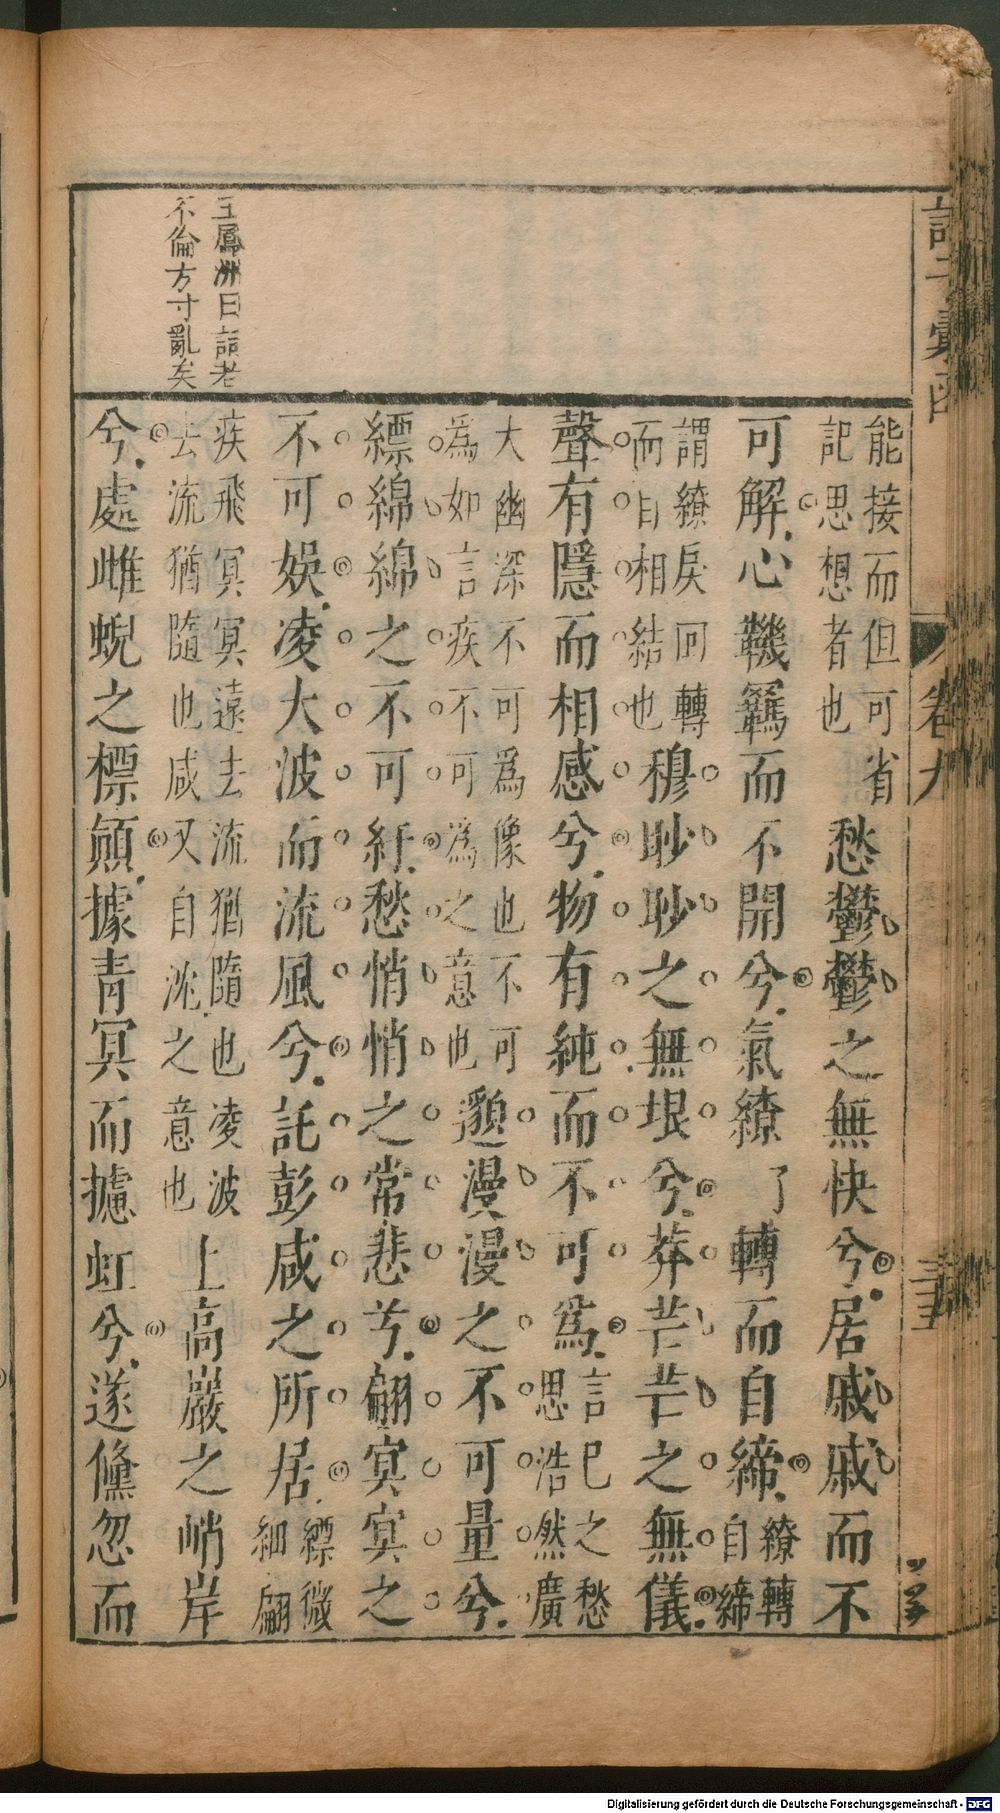 諸子彙函
卷九
王鳳洲曰語老
不倫方寸亂矣
能接而但可省
記思想者也
愁鬱鬱之無快兮居戚戚而不
可解心鞿羈而不開兮氣繚轉而自締
繚轉
自締
謂繚戾回轉
而自相結也
穆眇眇之無垠兮莽芒芒之無儀
聲有隱而相感兮物有純而不可爲
言己之愁
思浩然廣
大幽深不可為像也不可
為如言疾不可為之意也
邈漫漫之不可量兮
縹綿綿之不可紆愁悄悄之常悲兮翩冥冥之
不可娛凌大波而流風兮託彭咸之所居
縹微
細翩
疾飛冥冥遠去流猶隨也凌波
去流猶隨也咸又自沈之意也
上高巖之峭岸
兮處雌蜺之標顛據靑冥而攄虹兮遂儵忽而
Digitalisierung gefördert durch die Deutsche Forschungsgemeinschaft - DFG